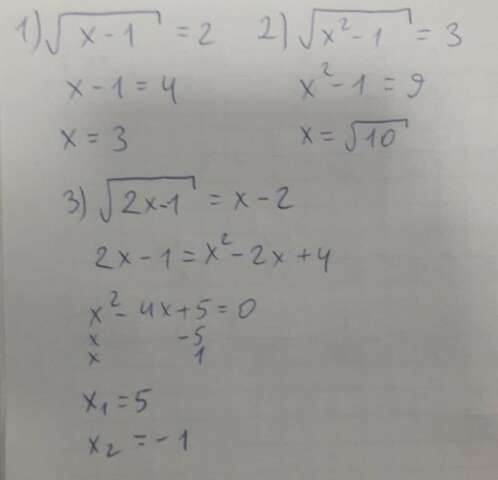 1) √(x-1) = 2
x-1=4
x=3
2) √(x²-1) = 3
x²-1=9
x=√10
3) √(2x-1) = x-2
2x-1=x²-2x+4
x²-4x+5=0
x -5
x 1
x₁=5
x₂=-1